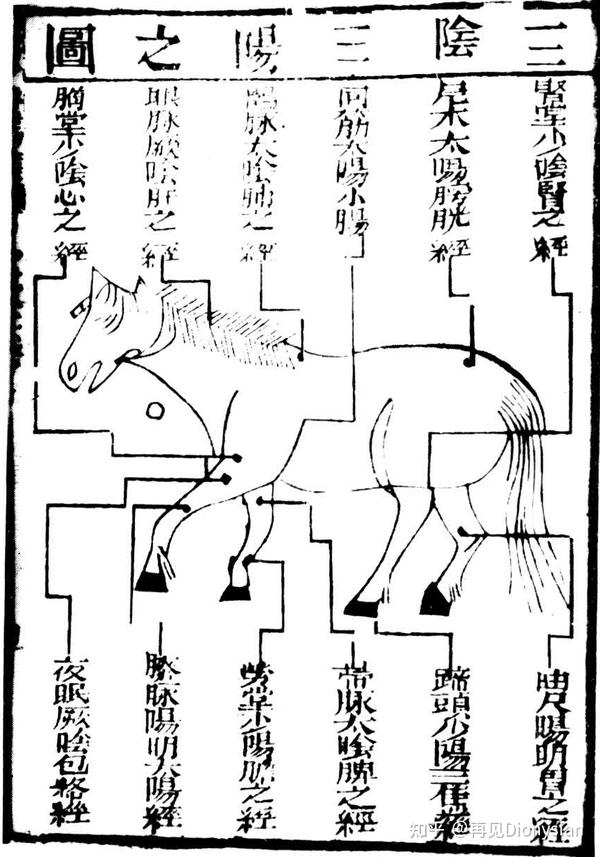 三陰三陽之圖
腎堂少陰腎之經
尾本太陽膀胱經
同筋太陽小腸
鶻脉太陰肺之經
眼脉厥陰肝之經
胸堂少陰心之經
曲尺陽明胃之經
蹄頭少陽三焦經
帶脉太陰脾之經
勞堂少陽胆之經
膝脉陽明大腸經
夜眼厥陰包絡經
知乎 @再见Dionysian